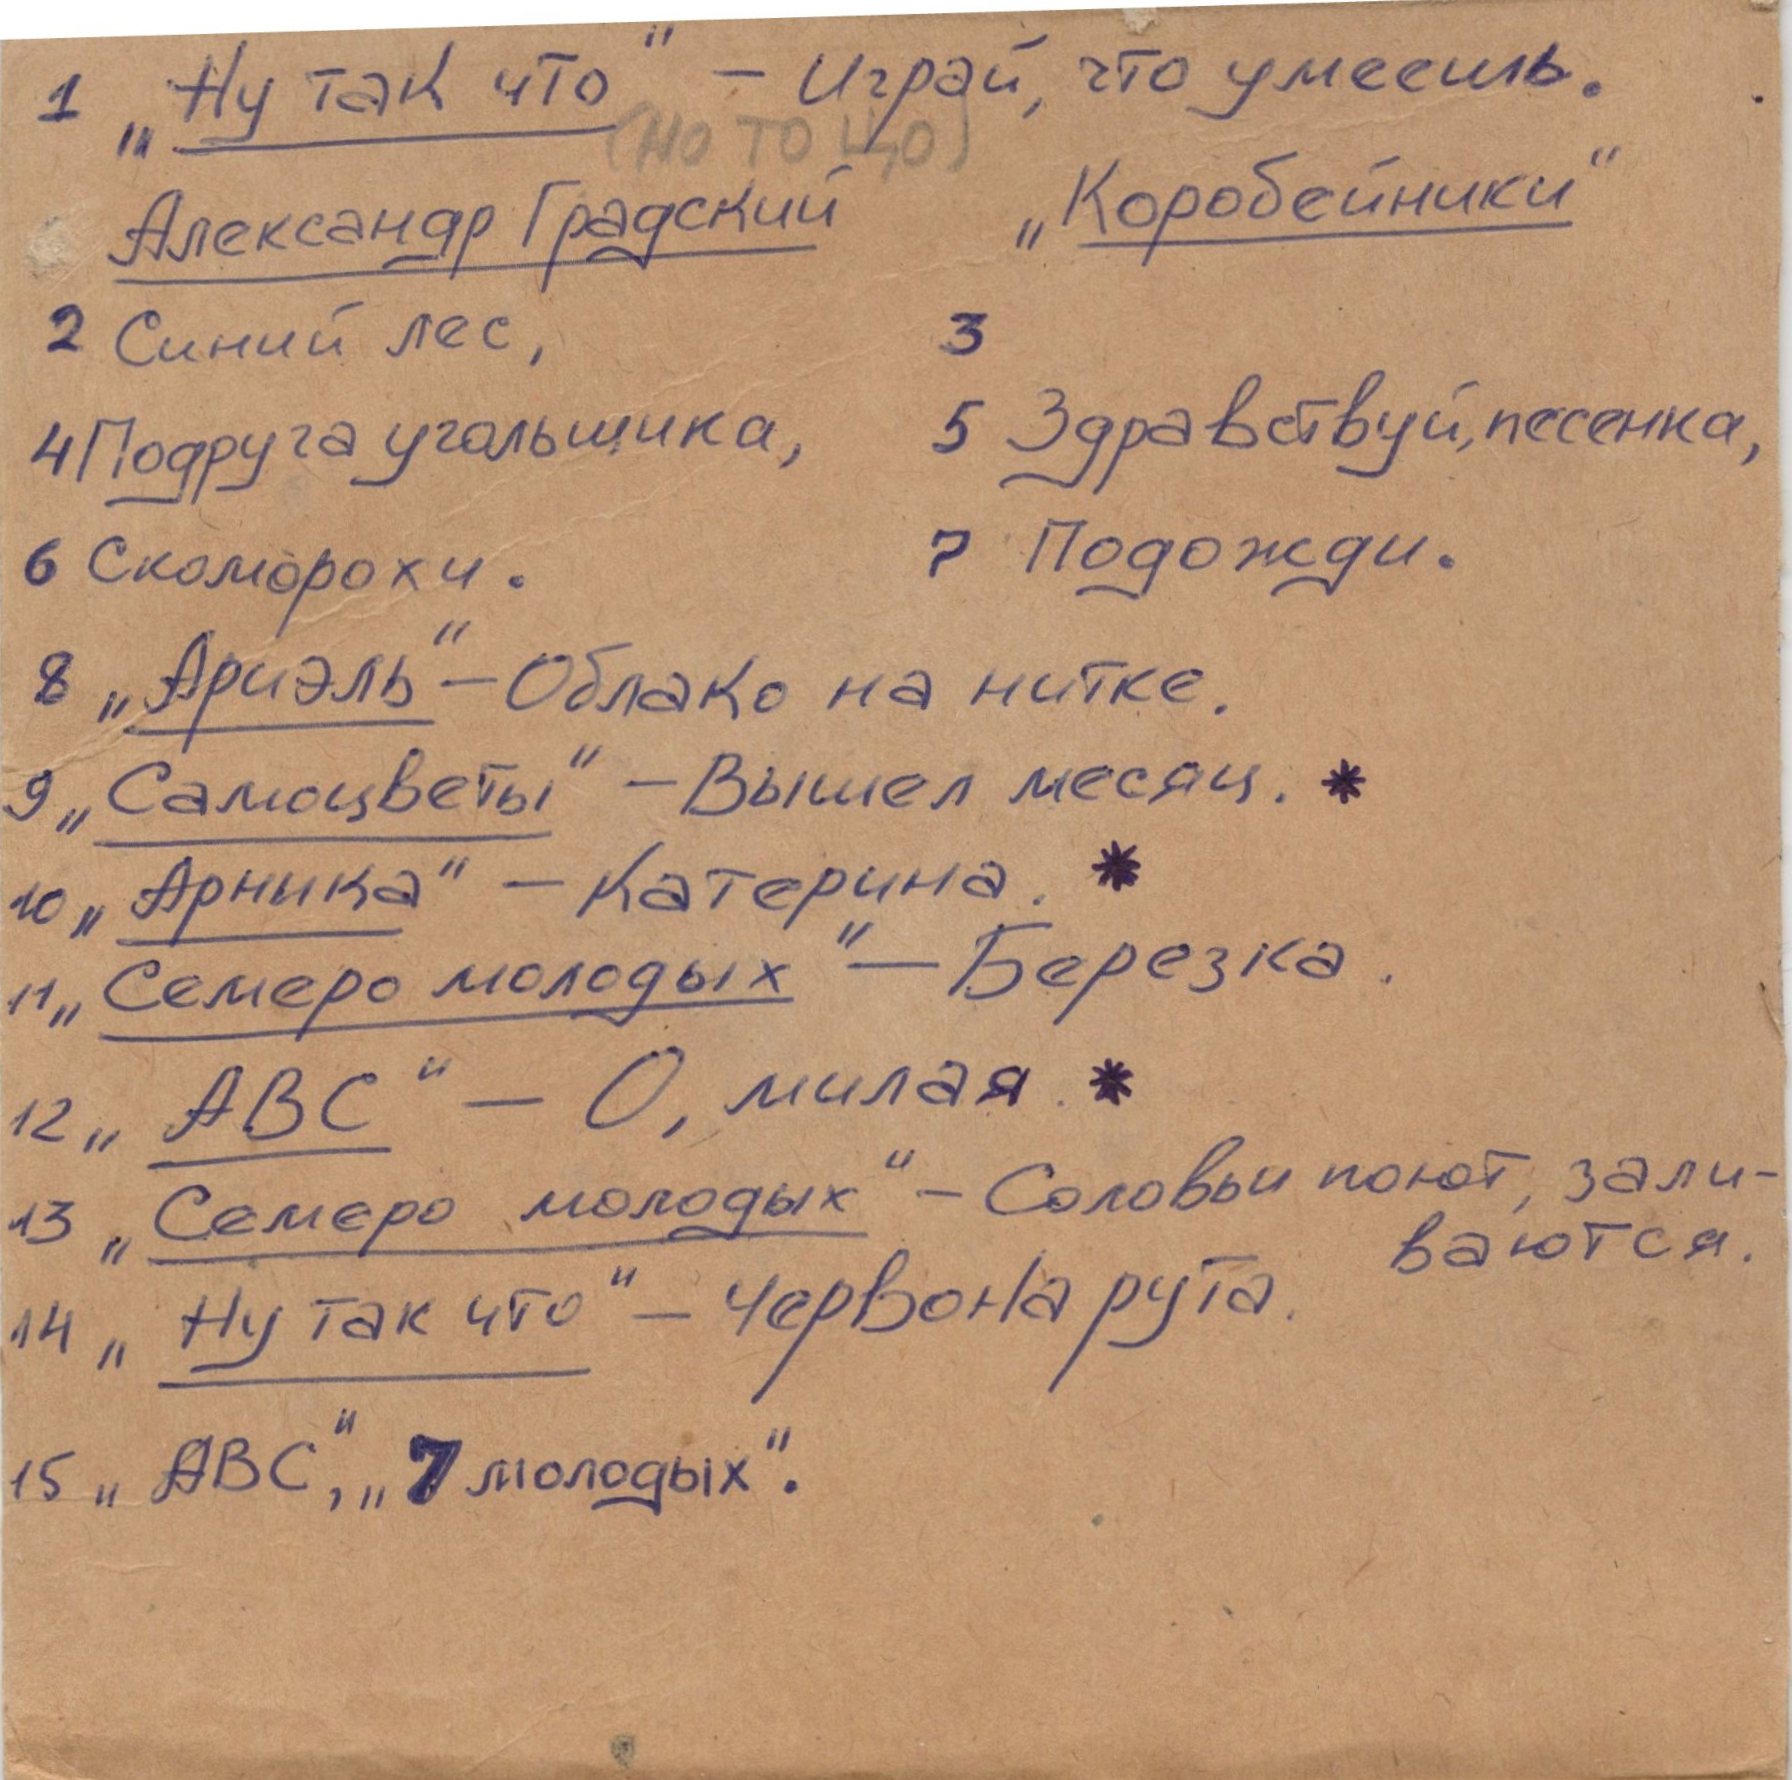 1 „Ну так что" – Играй, что умеешь.
(НО ТО ЦО)
Александр Градский „Коробейники"
2 Синий лес, 3
4 Подруга угольщика, 5 Здравствуй, песенка,
6 Скоморохи. 7 Подожди.
8 „Ариэль" – Облако на нитке.
9 „Самоцветы" – Вышел месяц. *
10 „Арника" – Катерина. *
11 „Семеро молодых" – Березка.
12 „АВС" – О, милая. *
13 „Семеро молодых" – Соловьи поют, зали-
ваются.
14 „Ну так что" – Червона рута.
15 „АВС", „7 молодых".